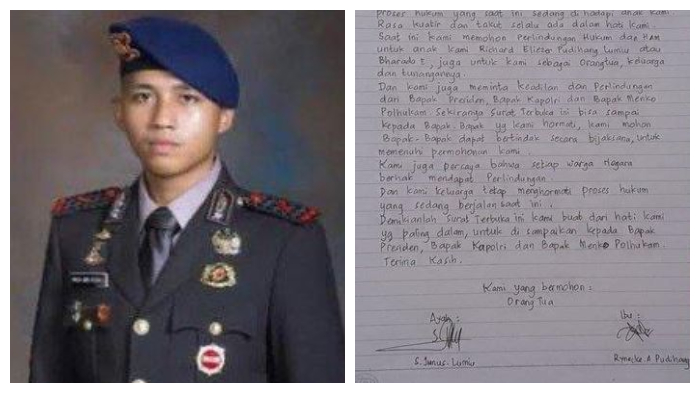 proses hukum yang saat ini sedang di hadapi anak kami.
Rasa kuatir dan takut selalu ada dalam hati kami.
Saat ini kami memohon Perlindungan Hukum dan HAM
untuk anak kami Richard Eliezer Pudihang Lumiu atau
Bharada E, juga untuk kami sebagai Orangtua, keluarga
dan tunangannya.
Dan kami juga meminta Keadilan dan Perlindungan
dari Bapak Presiden, Bapak Kapolri dan Bapak Menko
Polhukam. Sekiranya Surat Terbuka ini bisa sampai
kepada Bapak-Bapak yg kami hormati, kami mohon
Bapak-Bapak dapat bertindak secara bijaksana, untuk
memenuhi permohonan kami.
Kami juga percaya bahwa setiap warga Negara
berhak mendapat Perlindungan.
Dan kami keluarga tetap menghormati proses hukum
yang sedang berjalan saat ini.
Demikianlah Surat Terbuka ini kami buat dari hati kami
yg paling dalam, untuk di sampaikan kepada Bapak
Presiden, Bapak Kapolri dan Bapak Menko Polhukam.
Terima Kasih.
Kami yang bermohon :
Orang Tua
Ayah : Ibu :
S. Junus. Lumiu Rynecke. A Pudihang